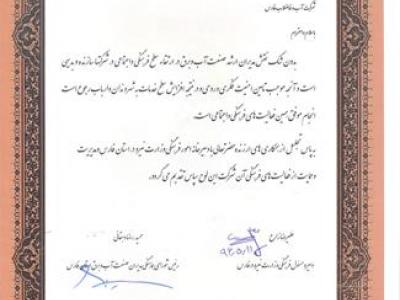 شرکت آب و فاضلاب فارس
باسلام و احترام
بدون شک نقش مدیران ارشد صنعت آب و برق در ارتقاء سطح فرهنگی و اجتماعی در شرکتها سازنده و بدیهی
است و آنچه موجب تامین امنیت فکری و روحی و در نتیجه افزایش سطح خدمات به شهروندان و ارباب رجوع است
انجام موفق همین فعالیت های فرهنگی و اجتماعی است.
به پاس تجلیل از همکاری های ارزنده حضرتعالی با دبیرخانه امور فرهنگی وزارت نیرو در استان فارس و مدیریت
و حمایت از فعالیت های فرهنگی آن شرکت این لوح سپاس تقدیم می گردد.
علیرضا
حمید رضا دهقانی
وزارت نیرو در فارس
رئیس شورای هماهنگی مدیران صنعت آب و برق استان فارس